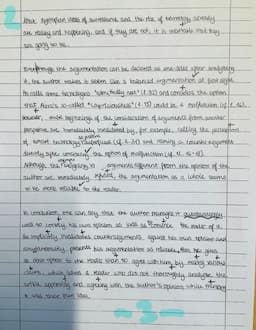 that dystopian ideas of surveillance and the rise of technology already
are really and happening, and if they are not, it is inevitable that they
are going to be.
Eventhough the argumentation can be described as one-sided after analyzing
it, the author makes it seem like a balanced argumentation at first sight.
He calls some technologies "admittedly not" (l. 32) and considers the option
that Alexa's so-called " " (l. 15) could be a malfunction (cf. l. 16).
However, most beginnings of the consideration of arguments from another
perspective are immediately invalidated by, for example, calling the perception
of smart technology (cf. l. 31) and naming a counter argument
directly after the option of malfunction (cf. ll. 15-18).
Although the arguments different from the opinion of the
author are immediately , the argumentation as a whole seems
to be more reliable to the reader.
In conclusion, one can say that the author manages
well to convey his own opinion as well as to convince the reader of it.
He implicitly invalidates counterarguments against his own opinion and
simultaneously presents his argumentation as reliable, thus he gives
no other option to the reader than to agree with him by making
claims, which leaves a reader who did not thoroughly analyze the
article approving and agreeing with the author's opinion while thinking
it was their own idea.
-3-